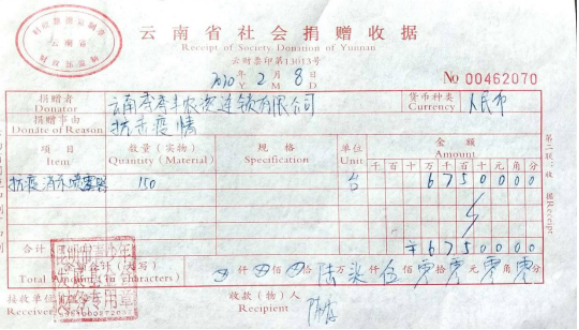 云南省社会捐赠收据
Receipt of Society Donation of Yunnan
云财票印第13013号
2020年 2月 8日
Y M D
No 00462070
捐赠者 Donator 云南 丰农资连锁有限公司
货币种类 Currency 人民币
捐赠事由 Donate of Reason 抗击疫情
项目 Item
数量(实物) Quantity (Material)
规格 Specification
单位 Unit
金额 Amount
千 百 十 万 千 百 十 元 角 分
抗疫消杀喷雾器 150 台 6 7 5 0 0 0 0
合计 ¥ 6 7 5 0 0 0 0
(大写) Total Amount (in characters) 仟 佰 拾 陆万 柒仟 伍佰 零拾 零元 零角 零分
接收单位 Receiver
收款(物)人 Recipient
第二联:收据 Receipt